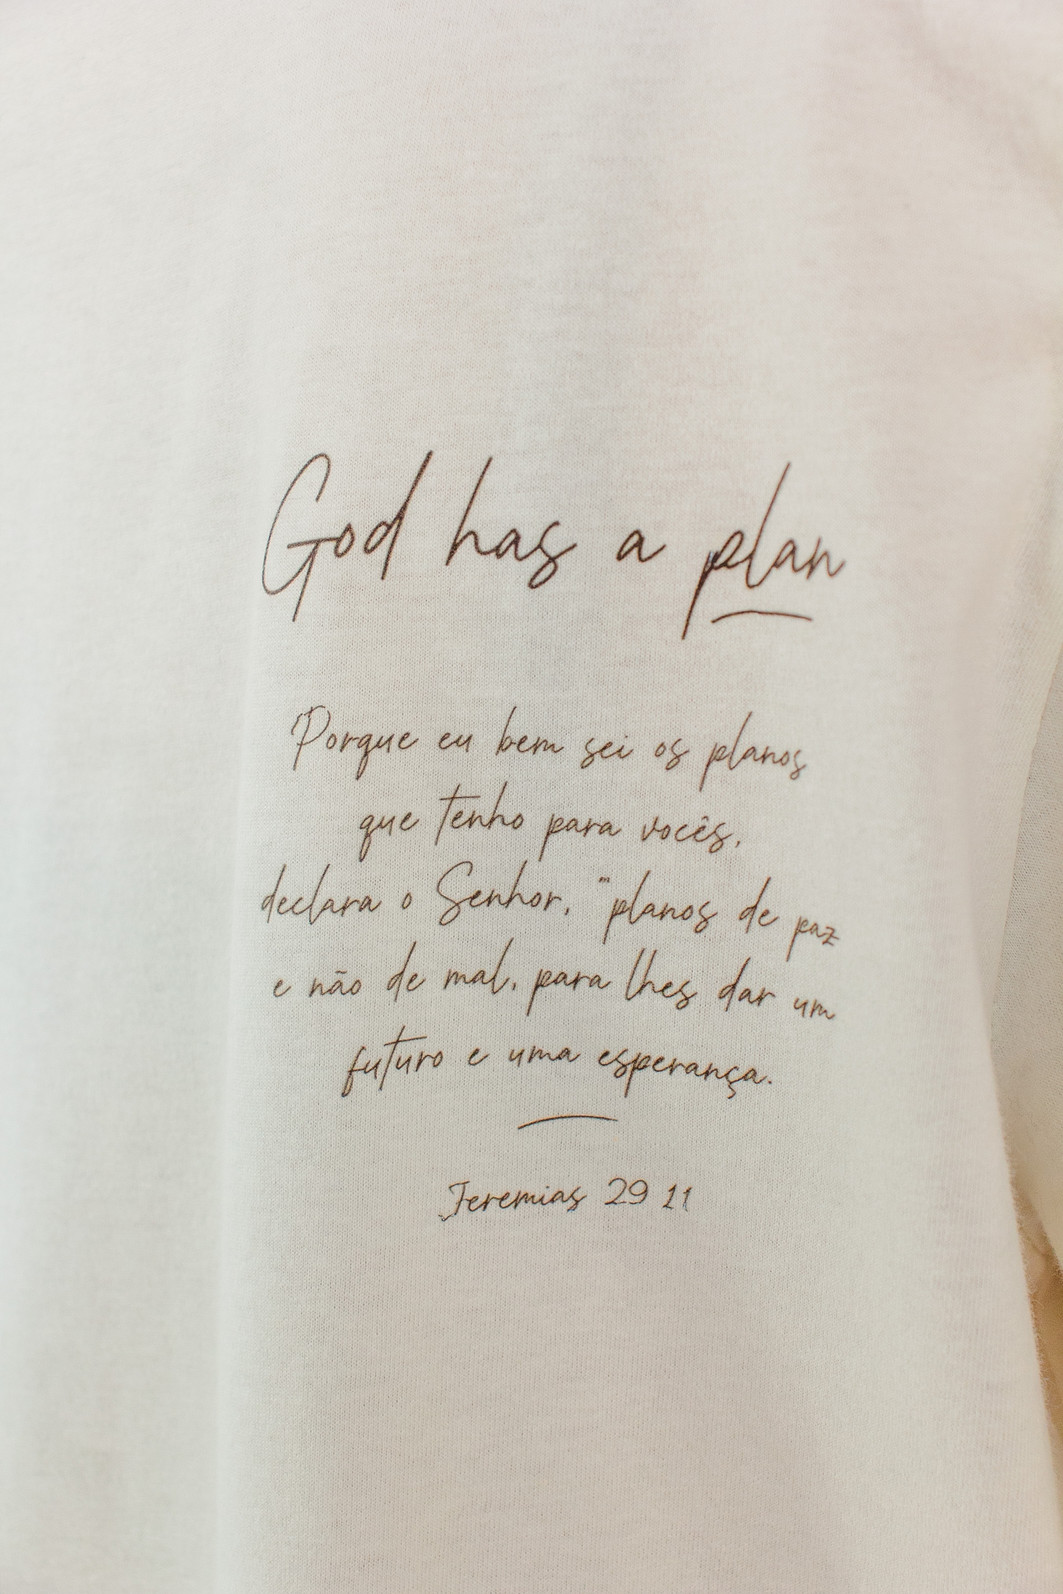 God has a plan
Porque eu bem sei os planos
que tenho para vocês,
declara o Senhor, "planos de paz
e não de mal, para lhes dar um
futuro e uma esperança.
Jeremias 29 11